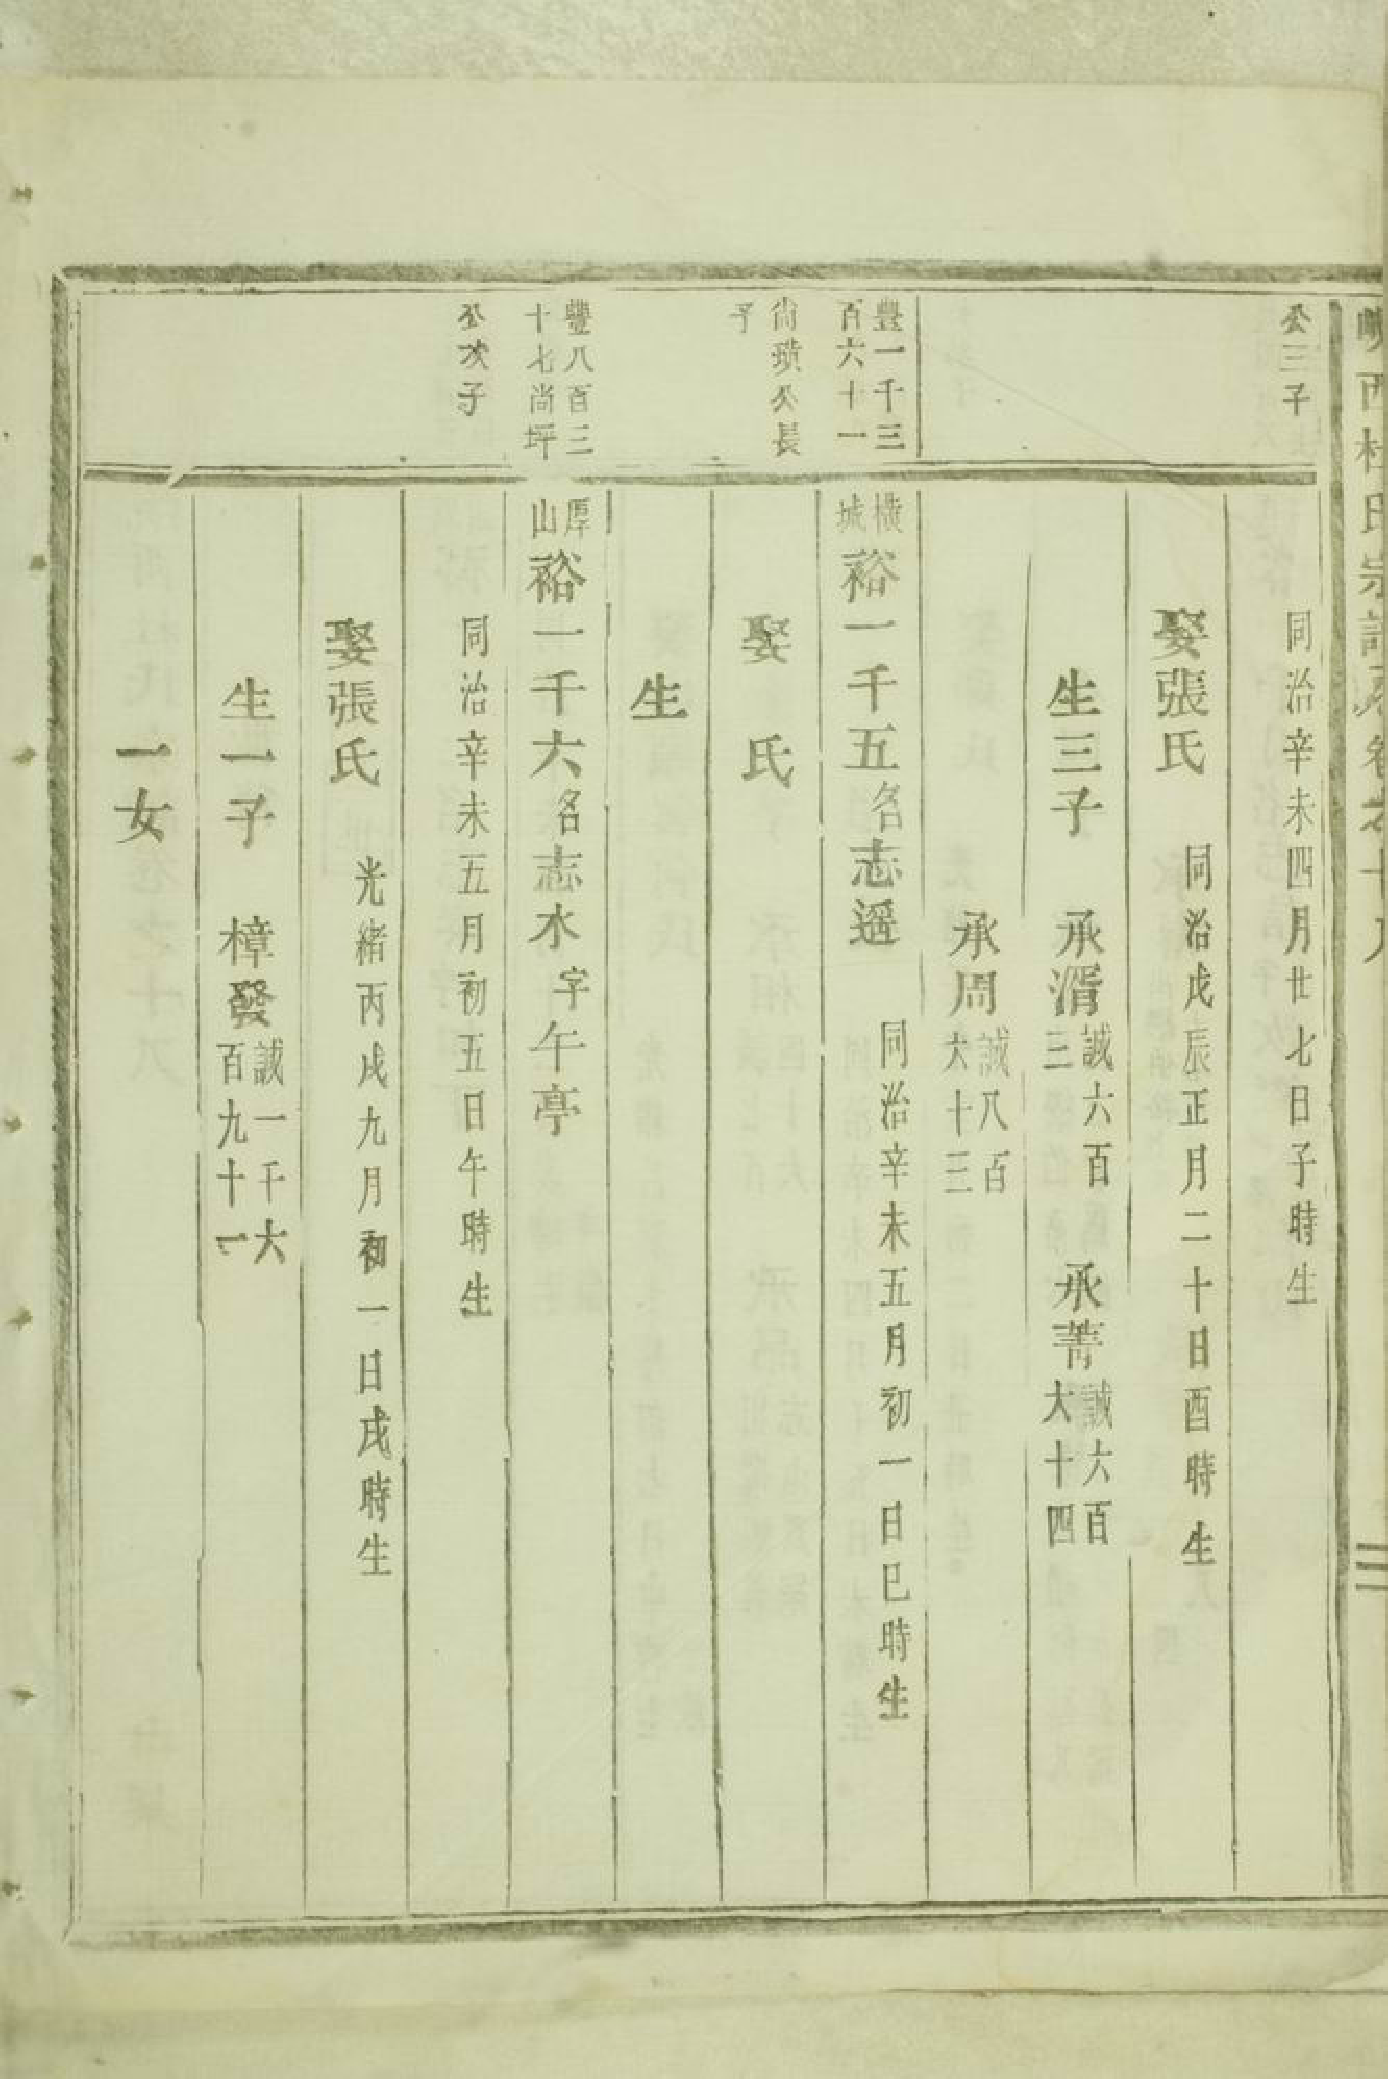 西杜氏宗譜卷之十八
公三子
同治辛未四月廿七日子時生
娶張氏 同治戊辰正月二十日酉時生
生三子 承湑誠六百三 承菁誠六百大十四
承周誠八百六十三
豐一千三百六十一
橫城裕一千五名志遥 同治辛未五月初一日巳時生
尙璜公長子
娶 氏
生
豐八百三十七尚坪
厚山裕一千六名志水字午亭
公次子
同治辛未五月初五日午時生
娶張氏 光緒丙戌九月初一日戌時生
生一子 樟發誠一千六百九十一
一女